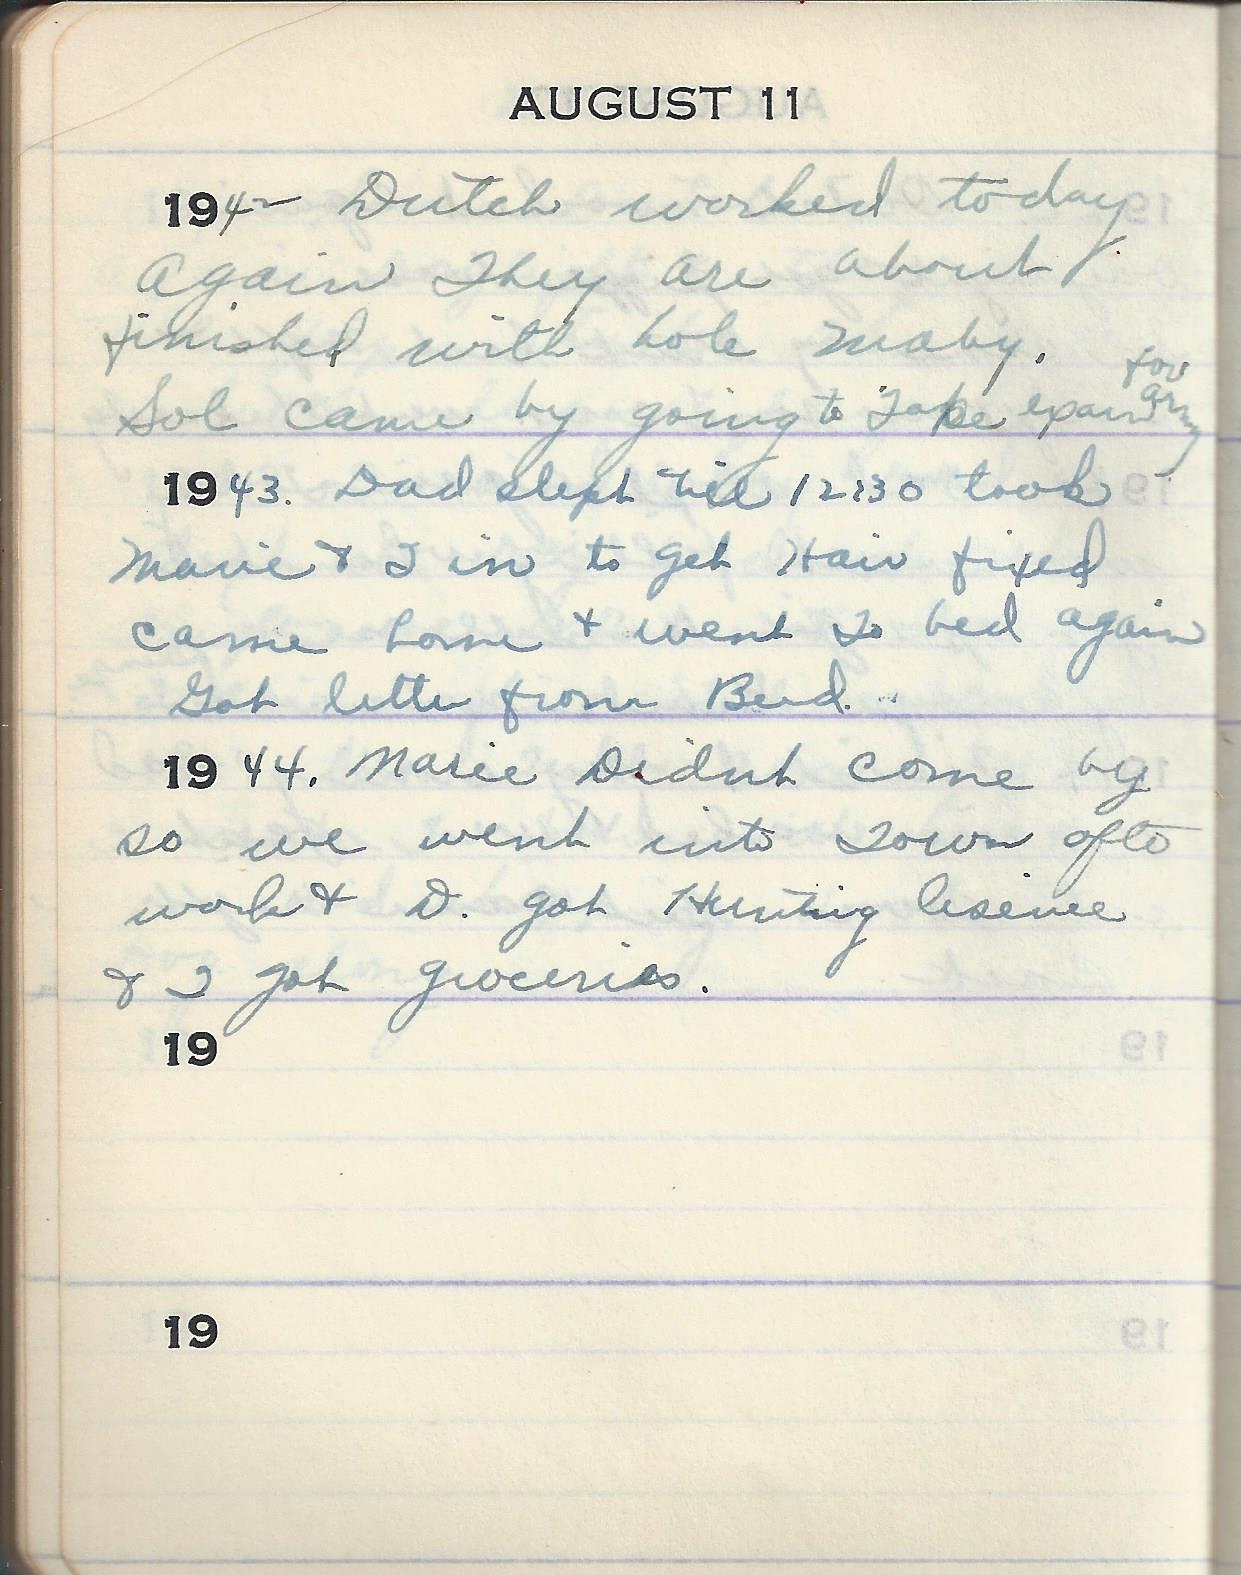 AUGUST 11
1942 Dutch worked today
Again They are about
finished with hole maby.
Sol came by going to Take exam for army
1943. Dad slept till 12:30 took
Marie & I in to get Hair fixed
came home & went to bed again
Got letter from Bud.
1944. Marie Didnt come by
so we went into Town afte
work & D. got Hunting lisence
& I got groceries.
19
19